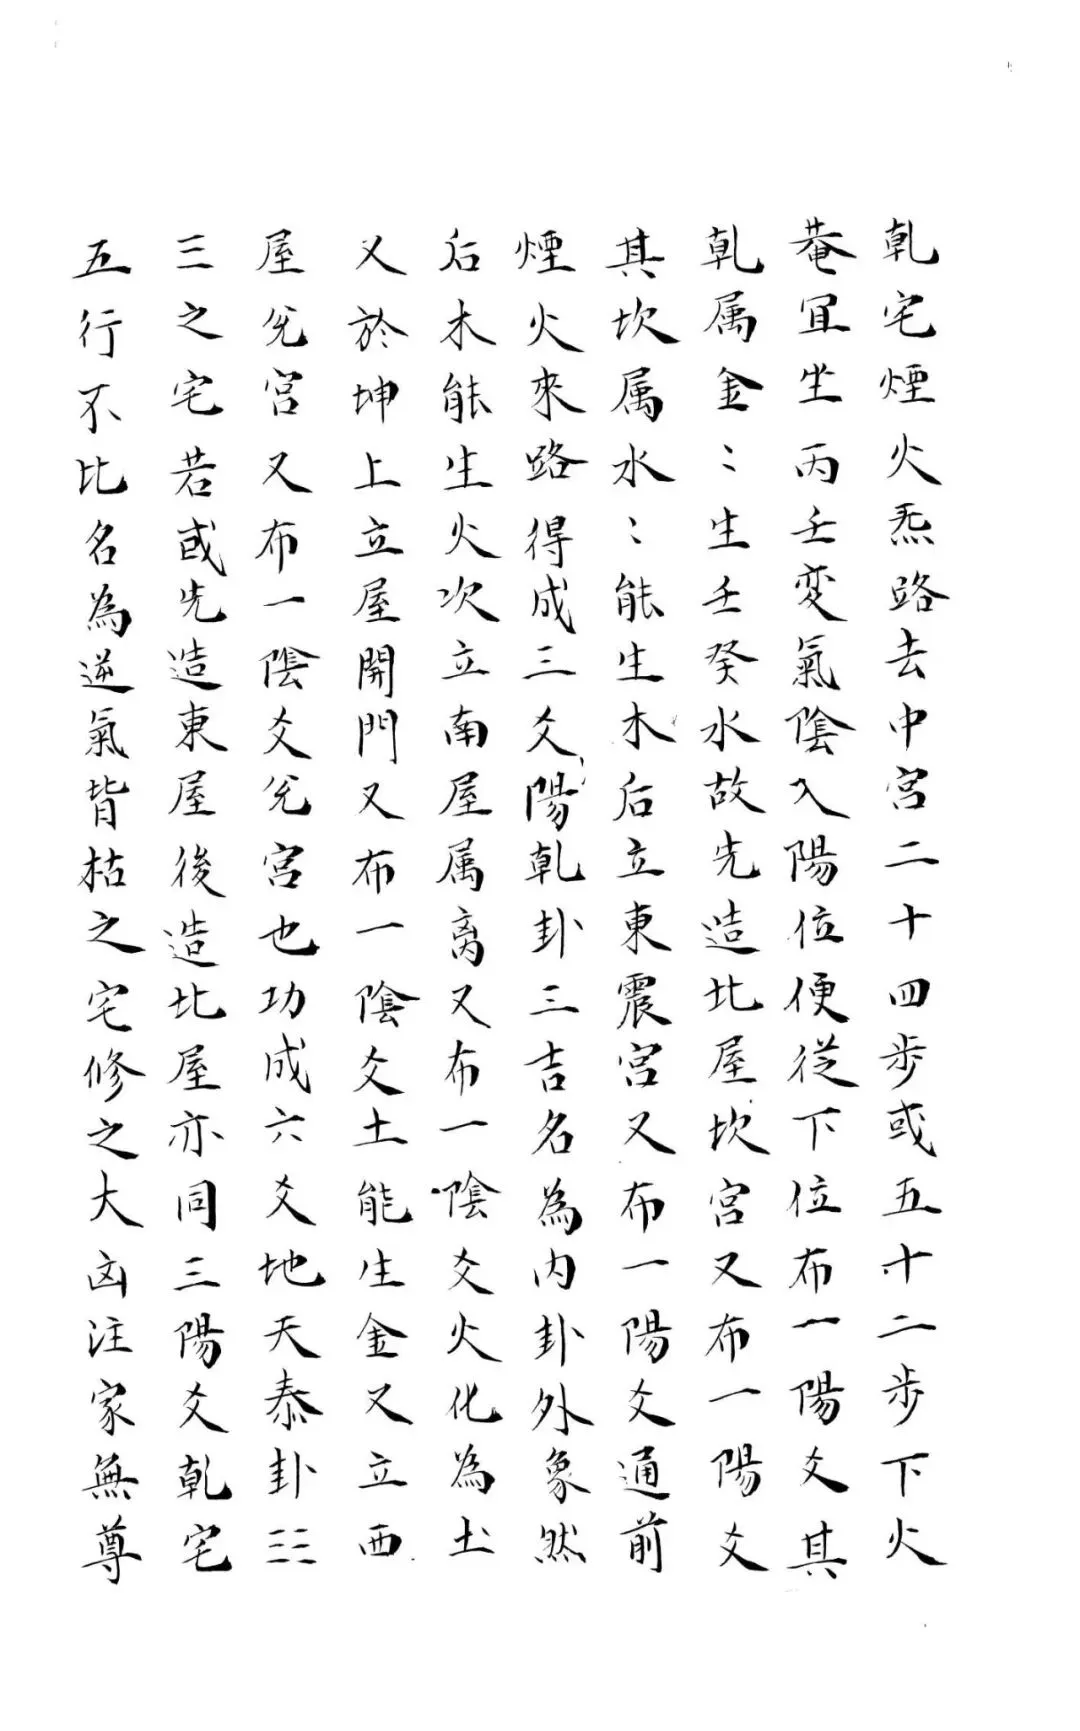 乹宅煙火炁路去中宮二十四步或五十二步下火
菴冝坐丙壬変氣隂入陽位便從下位布一陽爻其
乹属金〻生壬癸水故先造北屋坎宮又布一陽爻
其坎属水〻能生木后立東震宮又布一陽爻通前
煙火來路得成三爻陽乹卦三吉名為内卦外象然
后木能生火次立南屋属离又布一隂爻火化為土
又於坤上立屋開門又布一隂爻土能生金又立西
屋兊宮又布一隂爻兊宮也功成六爻地天泰卦☷
三之宅若或先造東屋後造北屋亦同三陽爻乹宅
五行不比名為逆氣背枯之宅修之大凶注家無尊